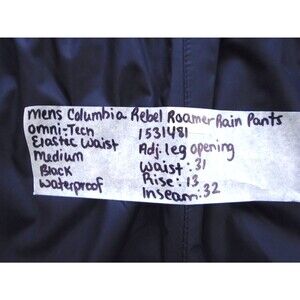 mens Columbia Rebel Roamer Rain Pants
omni-Tech 1531481
Elastic Waist Adj. leg opening
Medium Waist: 31
Black Rise: 13
Waterproof Inseam: 32